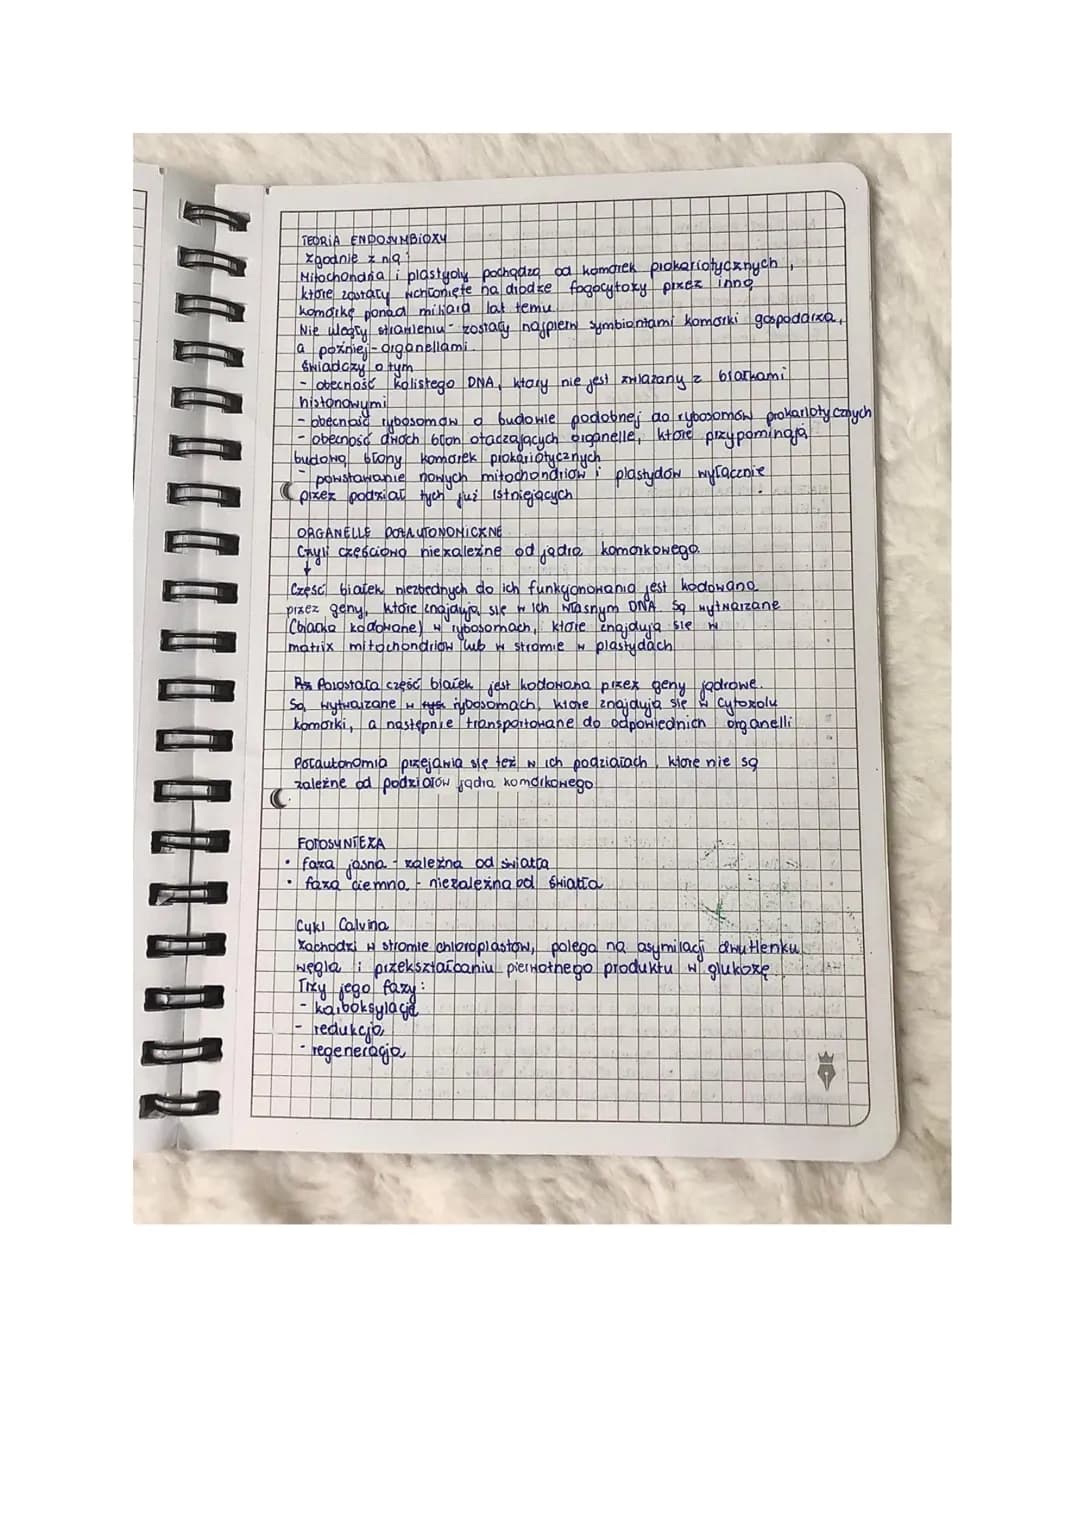 TEORIA ENDOSYMBIOZY
Zgodnie z nią:
Mitochondria i plastydy pochodzą od komórek prokariotycznych,
które zostały wchłonięte na drodze fagocytozy przez inną
komórkę ponad miliard lat temu.
Nie uległy strawieniu - zostały najpierw symbiontami komórki gospodarza,
a później - organellami.
Świadczy o tym
- obecność kolistego DNA, który nie jest związany z białkami
histonowymi
- obecność rybosomów o budowie podobnej do rybosomów prokariotycznych
- obecność dwóch błon otaczających organelle, które przypominają
budową błony komórek prokariotycznych
- powstawanie nowych mitochondriów i plastydów wyłącznie
przez podział tych już istniejących
ORGANELLE PÓŁAUTONOMICZNE
Czyli częściowo niezależne od jądra komórkowego.
↓
Część białek niezbędnych do ich funkcjonowania jest kodowana
przez geny, które znajdują się w ich własnym DNA. Są wytwarzane
(białka kodowane) w rybosomach, które znajdują się w
matrix mitochondriów lub w stromie w plastydach
Pozostała część białek jest kodowana przez geny jądrowe.
Są wytwarzane w rybosomach, które znajdują się w cytozolu
komórki, a następnie transportowane do odpowiednich organelli
Półautonomia przejawia się też w ich podziałach, które nie są
zależne od podziałów jądra komórkowego
FOTOSYNTEZA
• faza jasna - zależna od światła
• faza ciemna - niezależna od światła
Cykl Calvina
Zachodzi w stromie chloroplastów, polega na asymilacji dwutlenku
węgla i przekształcaniu pierwotnego produktu w glukozę.
Trzy jego fazy:
- karboksylacja
- redukcja
- regeneracja